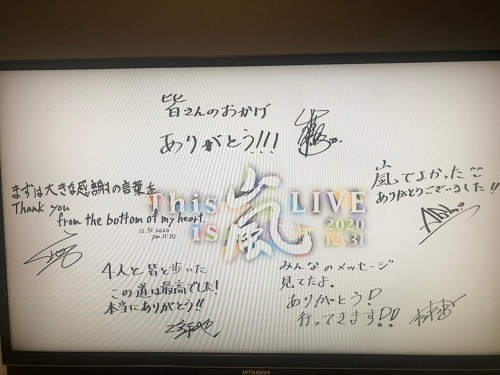 皆さんのおかげ
ありがとう!!!
まずは大きな感謝の言葉を
Thank you
from the bottom of my heart.
12.31.2020
pm.11:20
This is 嵐 LIVE
2020
12.31
嵐でよかった
ありがとうございました!!
4人と皆と歩いた
この道は最高でした!
本当にありがとう!!
みんなのメッセージ
見てたよ。
ありがとう!
行ってきます!!
MITSUBISHI